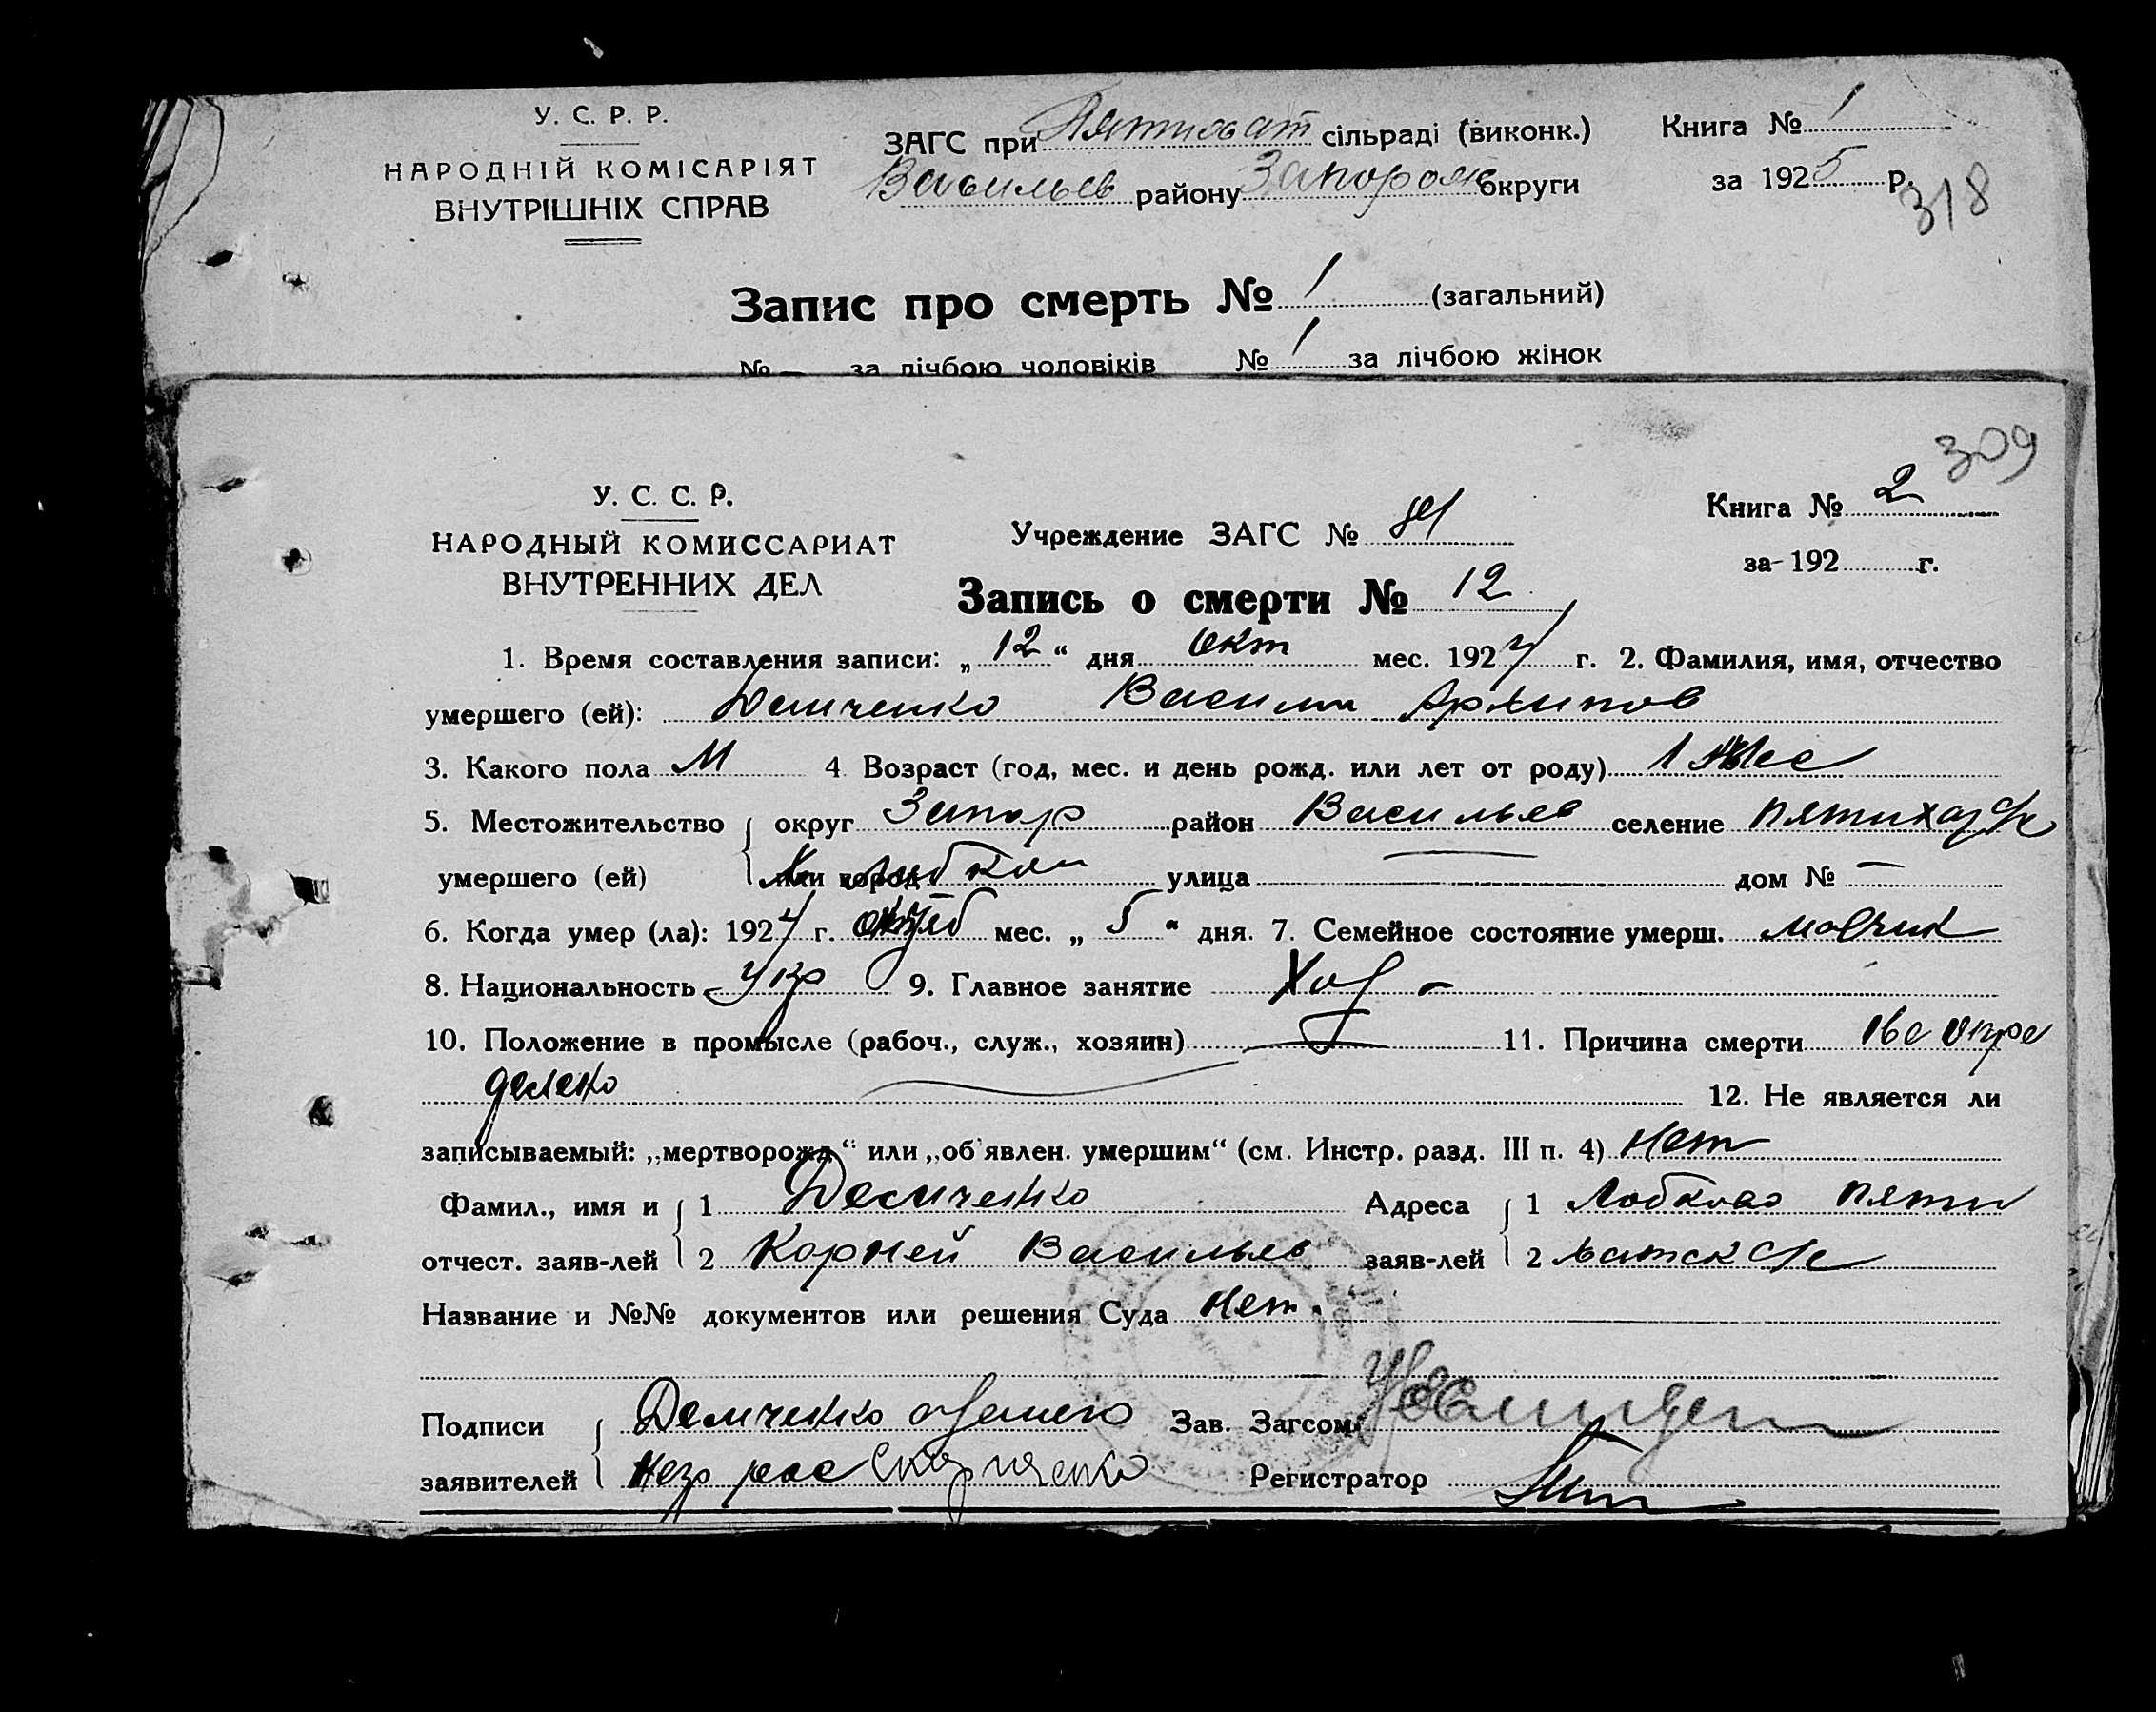 У. С. Р. Р.
НАРОДНІЙ КОМІСАРІЯТ
ВНУТРІШНІХ СПРАВ
ЗАГС при Пятихат сільраді (виконк.)
Васильев району Запорож округи
Книга № 1
за 1925 р.
318
Запис про смерть № 1 (загальний)
№ — за лічбою чоловіків № 1 за лічбою жінок
309
У. С. С. Р.
НАРОДНЫЙ КОМИССАРИАТ
ВНУТРЕННИХ ДЕЛ
Учреждение ЗАГС №
Книга № 2
за 192 г.
Запись о смерти № 12
1. Время составления записи: „ 12 “ дня Окт мес. 1924 г. 2. Фамилия, имя, отчество
умершего (ей): Демченко Васили Архипов
3. Какого пола М 4 Возраст (год, мес. и день рожд. или лет от роду) 1 мес
5. Местожительство округ Запор район Васильев селение
умершего (ей) или город улица — дом № —
6. Когда умер (ла): 1924 г. мес. „ 5 “ дня. 7. Семейное состояние умерш.
8. Национальность Укр 9. Главное занятие
10. Положение в промысле (рабоч., служ., хозяин) 11. Причина смерти
12. Не является ли
записываемый: „мертворожд“ или „об'явлен. умершим“ (см. Инстр. разд. III п. 4) Нет
Фамил., имя и 1 Демченко Адреса 1 пяти
отчест. заяв-лей 2 Корней Васильев заяв-лей 2 хатск с/с
Название и №№ документов или решения Суда Нет.
Подписи Демченко Зав. Загсом
заявителей Регистратор